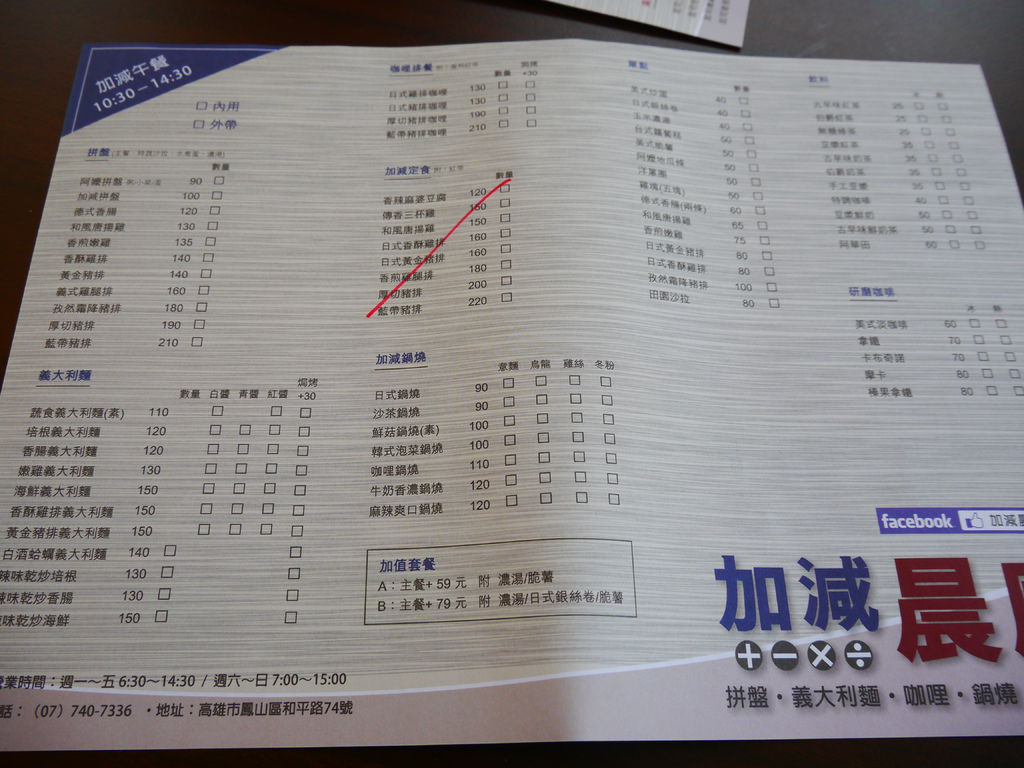 加減午餐
10:30～14:30
內用
外帶
拼盤
數量
阿嬤拼盤 90
加減拼盤 100
德式香腸 120
和風唐揚雞 130
香煎嫩雞 135
香酥雞排 140
黃金豬排 140
義式雞腿排 160
孜然霜降豬排 180
厚切豬排 190
藍帶豬排 210
義大利麵
數量 白醬 青醬 紅醬 焗烤+30
蔬食義大利麵(素) 110
培根義大利麵 120
香腸義大利麵 120
嫩雞義大利麵 130
海鮮義大利麵 150
香酥雞排義大利麵 150
黃金豬排義大利麵 150
白酒蛤蠣義大利麵 140
辣味乾炒培根 130
辣味乾炒香腸 130
味乾炒海鮮 150
營業時間：週一～五 6:30～14:30 / 週六～日 7:00～15:00
話：（07）740-7336 ・地址：高雄市鳳山區和平路74號
咖哩排餐
數量 焗烤+30
日式雞排咖哩 130
日式豬排咖哩 130
厚切豬排咖哩 190
藍帶豬排咖哩 210
加減定食 附：紅茶
數量
香辣麻婆豆腐 120
傳香三杯雞 150
和風唐揚雞 150
日式香酥雞排 160
日式黃金豬排 160
香煎雞腿排 180
厚切豬排 200
藍帶豬排 220
加減鍋燒
意麵 烏龍 雞絲 冬粉
日式鍋燒 90
沙茶鍋燒 90
鮮菇鍋燒(素) 100
韓式泡菜鍋燒 100
咖哩鍋燒 110
牛奶香濃鍋燒 120
麻辣爽口鍋燒 120
加值套餐
A：主餐+ 59 元 附 濃湯/脆薯
B：主餐+ 79 元 附 濃湯/日式銀絲卷/脆薯
單點
數量
美式炒蛋 40
日式銀絲卷 40
玉米濃湯 40
台式蘿蔔糕 50
美式脆薯 50
阿嬤地瓜條 50
洋蔥圈 50
雞塊(五塊) 50
德式香腸(兩條) 60
和風唐揚雞 65
香煎嫩雞 75
日式黃金豬排 80
日式香酥雞排 80
孜然霜降豬排 100
田園沙拉 80
飲料
冰 熱
古早味紅茶 25
伯爵紅茶 25
無糖綠茶 25
豆漿紅茶 35
古早味奶茶 35
伯爵奶茶 35
手工豆漿 35
特調咖啡 40
豆漿鮮奶 50
古早味鮮奶茶 50
阿華田 60
研磨咖啡
冰 熱
美式淡咖啡 60
拿鐵 70
卡布奇諾 70
摩卡 80
榛果拿鐵 80
facebook 加減
加減晨
拼盤・義大利麵・咖哩・鍋燒